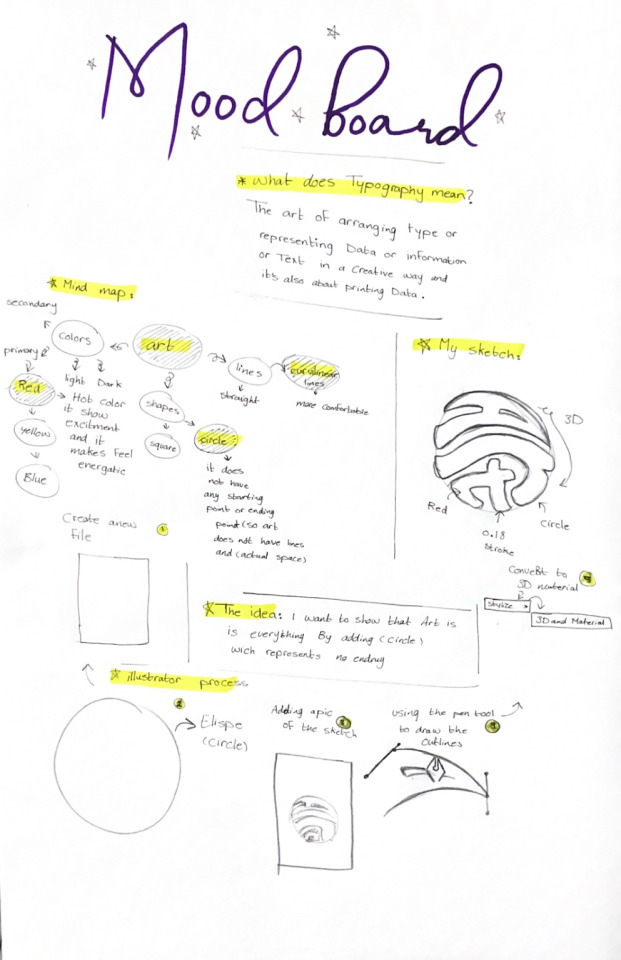 Mood board
* What does Typography mean?
The art of arranging type or
representing Data or information
or Text in a Creative way and
it's also about printing Data.
* Mind map:
secondary
colors
art
lines
curvulinear
lines
primary
light Dark
straight
more comfortable
Red
Hot color
it show
excitment
and it
makes Feel
energatic
shapes
yellow
square
circle:
Blue
it does
not have
any starting
point or ending
point (so art
does not have lines
and (actual space)
* My sketch:
3D
Red
Circle
0.18
Stroke
Create a new
File
1
* The idea: I want to show that Art is
is everything By adding (circle)
wich represents no endng
Convert to
3D material
Stylize >
3D and Material
* illustrator process
2
Elispe
(circle)
Adding a pic
of the sketch
3
using the pen tool
to draw the
Outlines